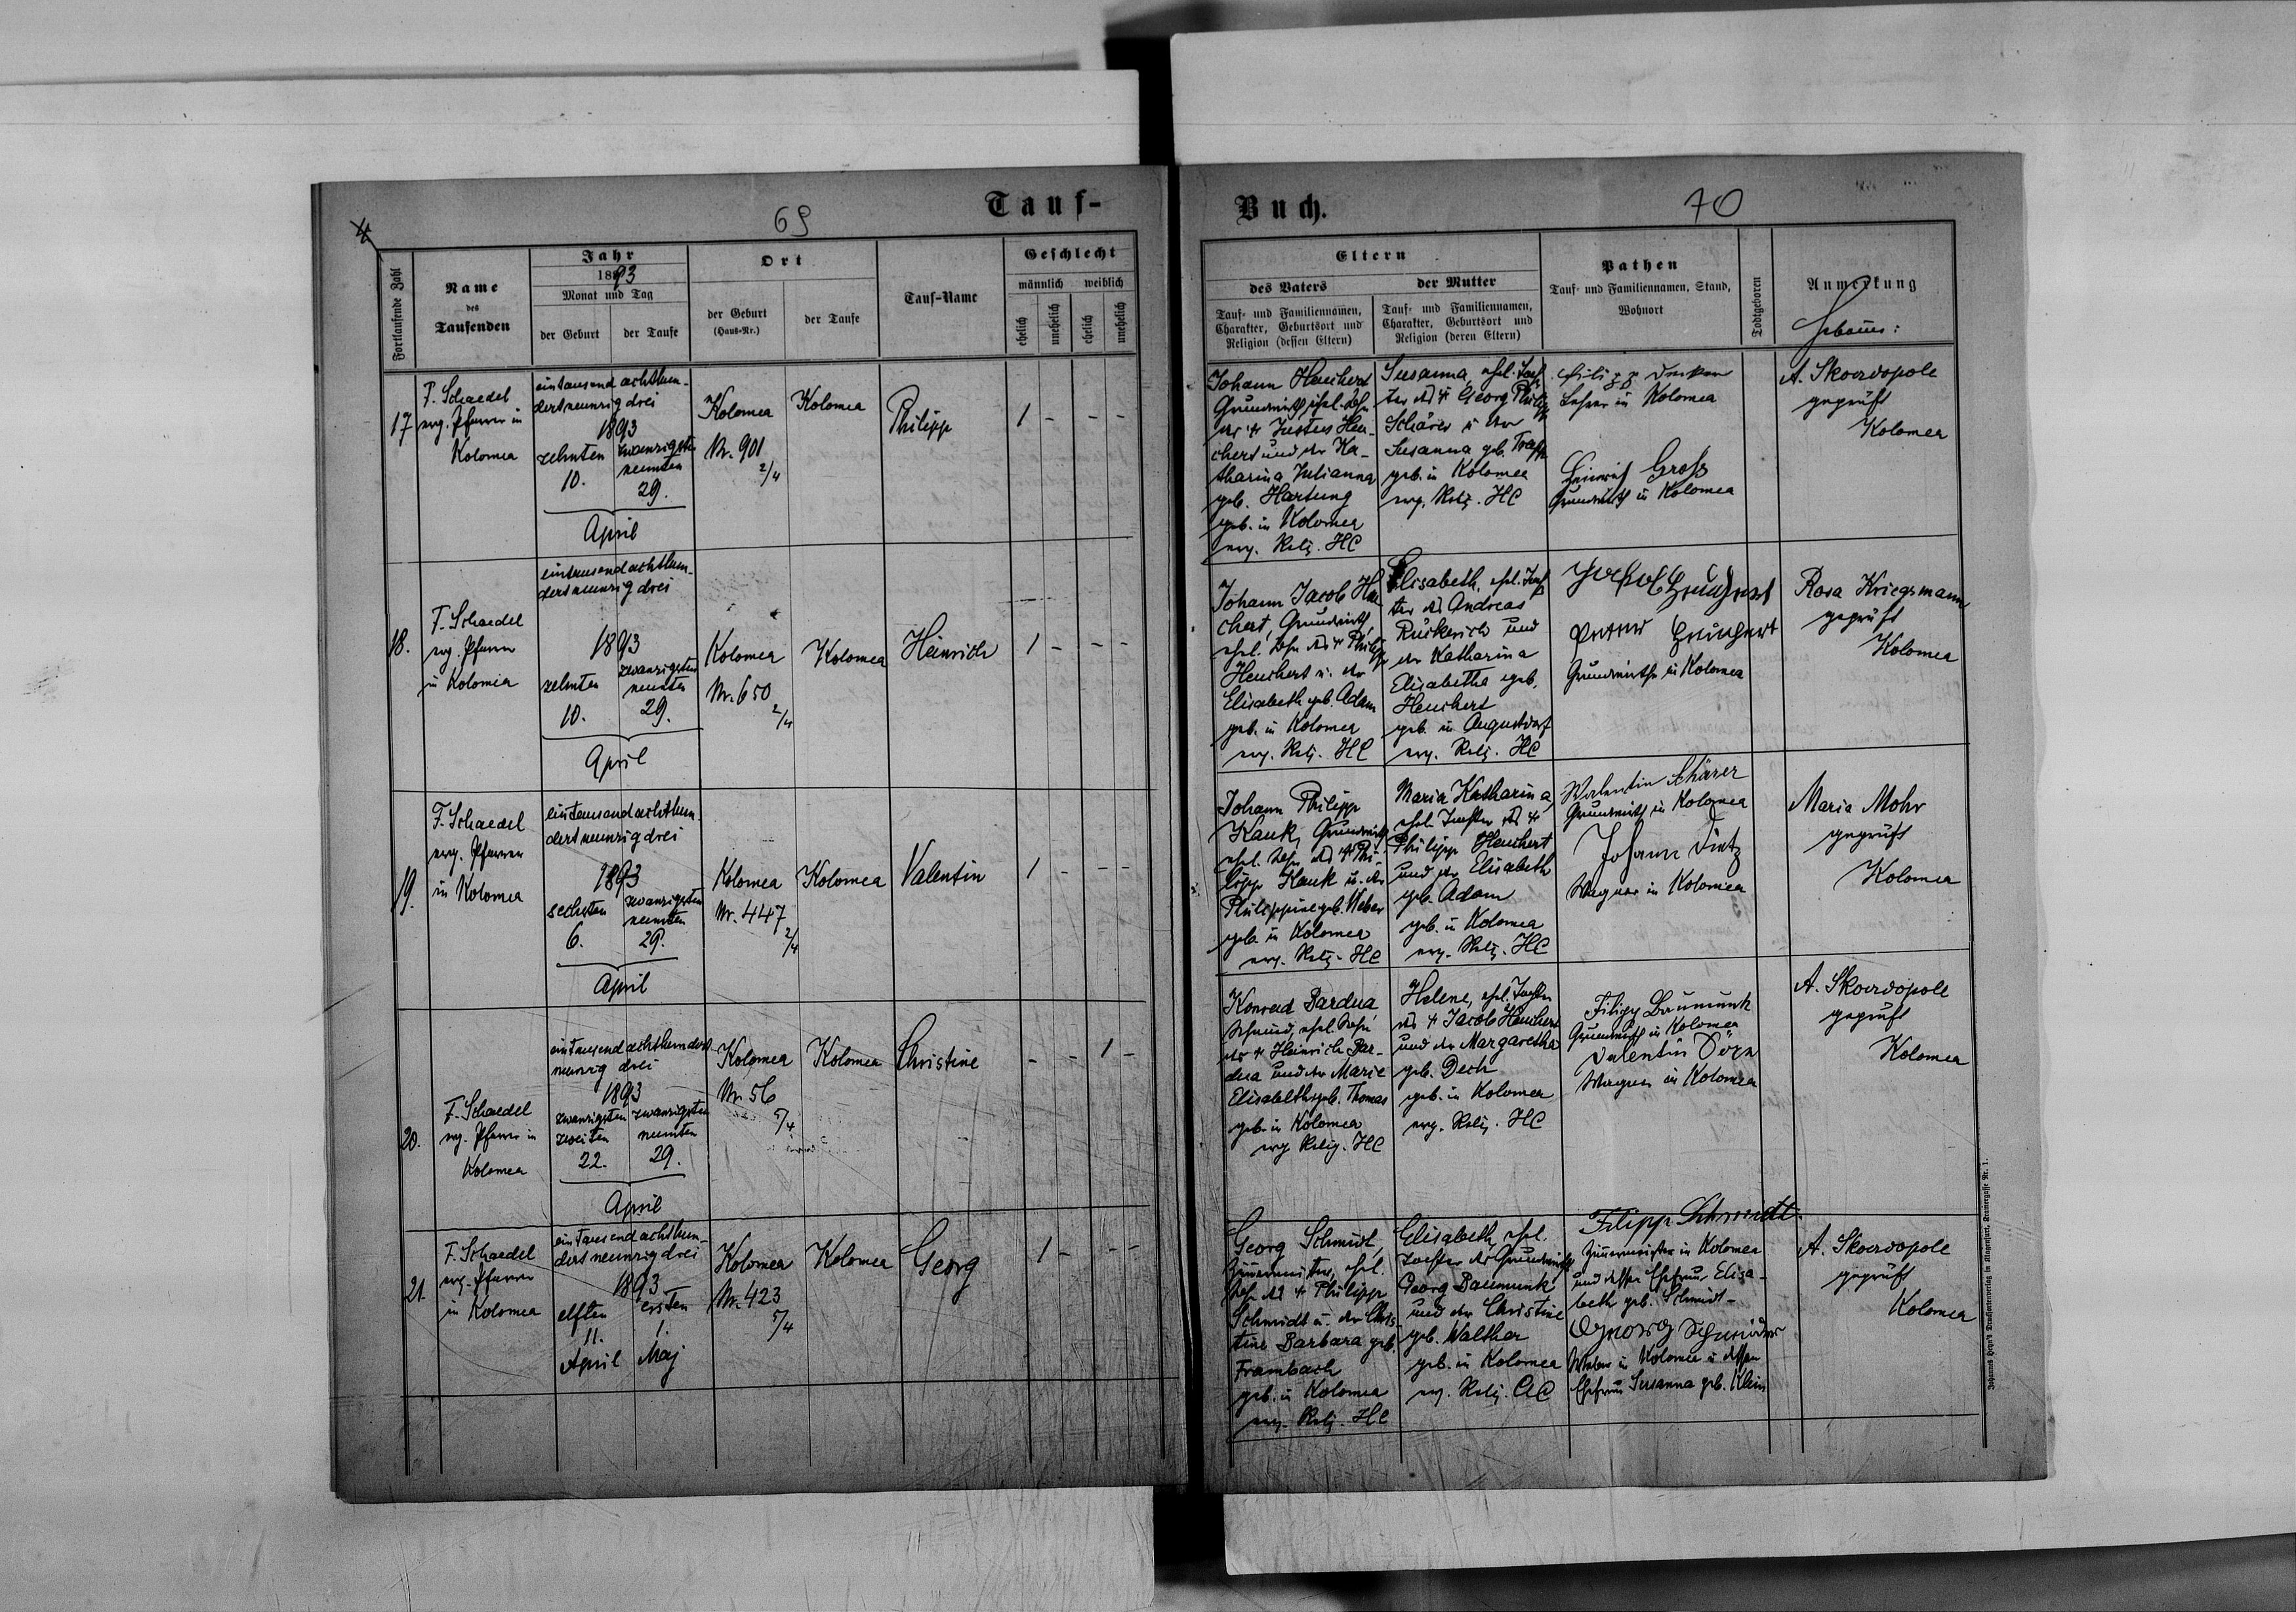 Tauf-
69
Fortlaufende Zahl
Name
des
Taufenden
Jahr
1893
Monat und Tag
der Geburt
der Taufe
Ort
der Geburt
(Haus-Nr.)
der Taufe
Tauf-Name
Geschlecht
männlich
weiblich
ehelich
unehelich
ehelich
unehelich
17
F. Schaedel
evg. Pfarrer in
Kolomea
eintausend achthun-
dertneunzig drei
1893
zehnten
10.
zwanzigsten
neunten
29.
April
Kolomea
Nr. 901
2/4
Kolomea
Philipp
1 - - -
18.
F. Schaedel
evg. Pfarrer
in Kolomea
eintausend achthun-
dertneunzig drei
1893
zehnten
10.
zwanzigsten
neunten
29.
April
Kolomea
Nr. 650
2/4
Kolomea
Heinrich
1 - - -
19.
F. Schaedel
evg. Pfarrer
in Kolomea
eintausend achthun-
dertneunzig drei
1893
sechsten
6.
zwanzigsten
neunten
29.
April
Kolomea
Nr. 447
2/4
Kolomea
Valentin
1 - - -
20.
F. Schaedel
evg. Pfarrer in
Kolomea
eintausend achthundert
neunzig drei
1893
zwanzigsten
zweiten
22.
zwanzigsten
neunten
29.
April
Kolomea
Nr. 56
5/4
Kolomea
Christine
- - 1 -
21.
F. Schaedel
evg. Pfarrer
in Kolomea
eintausend achthun-
dertneunzig drei
1893
elften
11.
April
ersten
1.
Maj
Kolomea
Nr. 423
5/4
Kolomea
Georg
1 - - -
Buch.
70
Eltern
des Vaters
Tauf- und Familiennamen,
Charakter, Geburtsort und
Religion (dessen Eltern)
der Mutter
Tauf- und Familiennamen,
Charakter, Geburtsort und
Religion (deren Eltern)
Pathen
Tauf- und Familiennamen, Stand,
Wohnort
Todtgeboren
Anmerkung
Hebamme:
Johann Heuchert
Grundwirth, ehel. Sohn
des † Justus Heu-
chert und der Ka-
tharina Julianna
geb. Hartung
geb. in Kolomea
evg. Relig. HC
Susanna, ehel. Toch-
ter des † Georg Philipp
Schärer u. der
Susanna geb.
geb. in Kolomea
evg. Relig. HC
Lehrer in Kolomea
Heinrich Groß
Grundwirth in Kolomea
A. Skowopole
geprüft
Kolomea
Johann Jacob Heu-
chert, Grundwirth,
ehel. Sohn des † Philipp
Heuchert u. der
Elisabeth geb. Adam
geb. in Kolomea
evg. Relig. HC
Elisabeth, ehel. Toch-
ter des Andreas
Rückerich und
der Katharina
Elisabetha geb.
Heuchert
geb. in Augustdorf
evg. Relig. HC
Jakob Heuchert
Peter Heuchert
Grundwirthe in Kolomea
Rosa Kriegsmann
geprüft
Kolomea
Johann Philipp
Kauk, Grundwirth
ehel. Sohn des † Phi-
lipp Kauk u. der
Philippine geb. Weber
geb. in Kolomea
evg. Relig. HC
Maria Katharina,
ehel. Tochter des †
Philipp Heuchert
und der Elisabeth
geb. Adam
geb. in Kolomea
evg. Relig. HC
Valentin Schärer
Grundwirth in Kolomea
Johann Dietz
Wagner in Kolomea
Maria Mohr
geprüft
Kolomea
Konrad Bardua
Schmied, ehel. Sohn
des † Heinrich Bar-
dua und der Marie
Elisabeth geb. Thomas
geb. in Kolomea
evg Relig. HC
Helene, ehel. Tochter
des † Jacob Heuchert
und der Margaretha
geb. Dech
geb. in Kolomea
evg. Relig. HC
Filipp Baumunk
Grundwirth in Kolomea
Valentin
Wagner in Kolomea
A. Skowopole
geprüft
Kolomea
Georg Schmidt,
Zimmermeister, ehel.
Sohn des † Philipp
Schmidt u. der Chris-
tine Barbara geb.
Frambach
geb. in Kolomea
evg. Relig. HC
Elisabeth, ehel.
Tochter des Grundwirth
Georg Baumunk
und der Christine
geb. Walther
geb. in Kolomea
evg. Relig. AC
Filipp Schmidt
Zimmermeister in Kolomea
und dessen Ehefrau Elisa-
beth geb. Schmidt-
Georg Schneider
Weber in Kolomea u dessen
Ehefrau Susanna geb. Klein
A. Skowopole
geprüft
Kolomea
Johannes Heyn's Drucksortenverlag in Klagenfurt, Kramergasse Nr. 1.